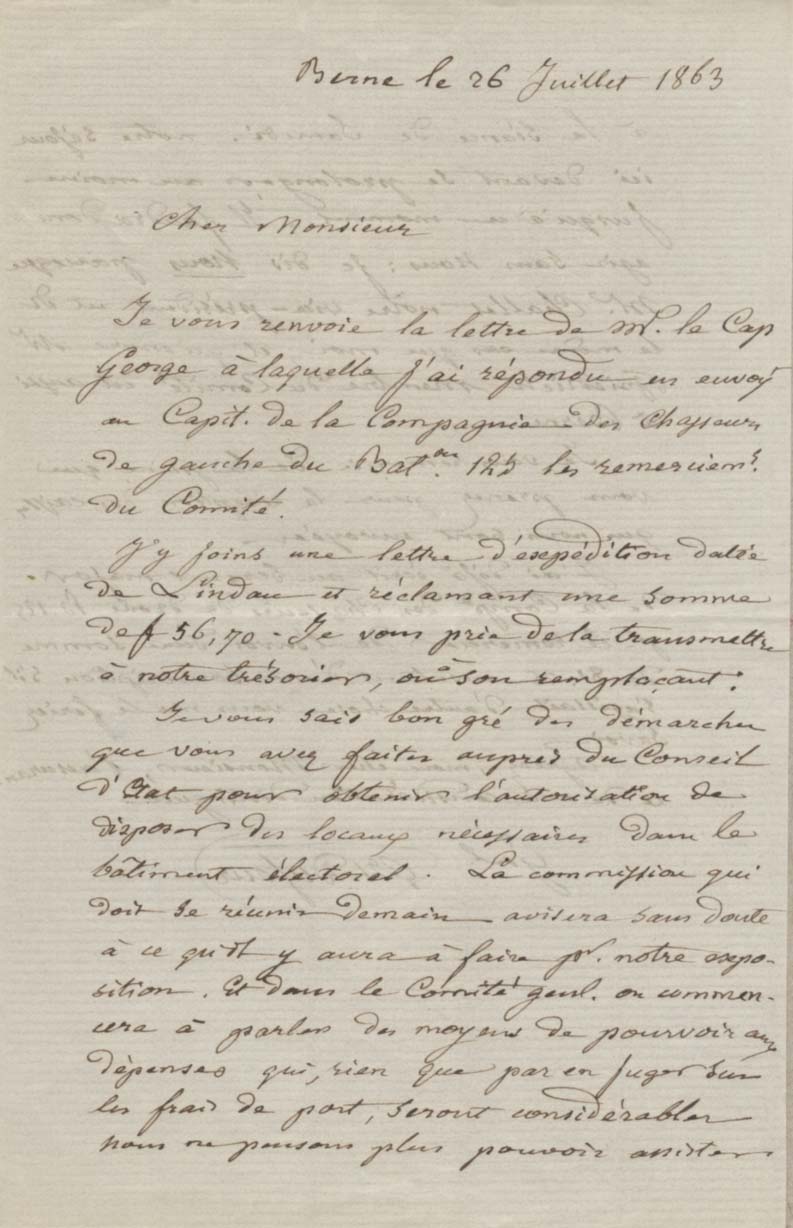 Berne le 26 Juillet 1863
Cher Monsieur
Je vous renvoie la lettre de Mr. le Cap
George à laquelle j'ai répondu en envoyt
au Capit. de la Compagnie des Chasseurs
de gauche du Baton. 125 les remerciemts.
du Comité.
J'y joins une lettre d'expédition datée
de Lindau et réclamant une somme
de f 56,70 - Je vous prie de la transmettre
à notre trésorier, ou à son remplaçant.
Je vous sais bon gré des démarches
que vous avez faites auprès du Conseil
d'Etat pour obtenir l'autorisation de
disposer des locaux nécessaires dans le
bâtiment électoral. La commission qui
doit se réunir demain avisera sans doute
à ce qu'il y aura à faire pr. notre expo-
sition. Et dans le Comité genl. on commen-
cera à parler des moyens de pourvoir aux
dépenses qui, rien que par en juger sur
les frais de port, seront considérables
nous ne pensons plus pouvoir assister